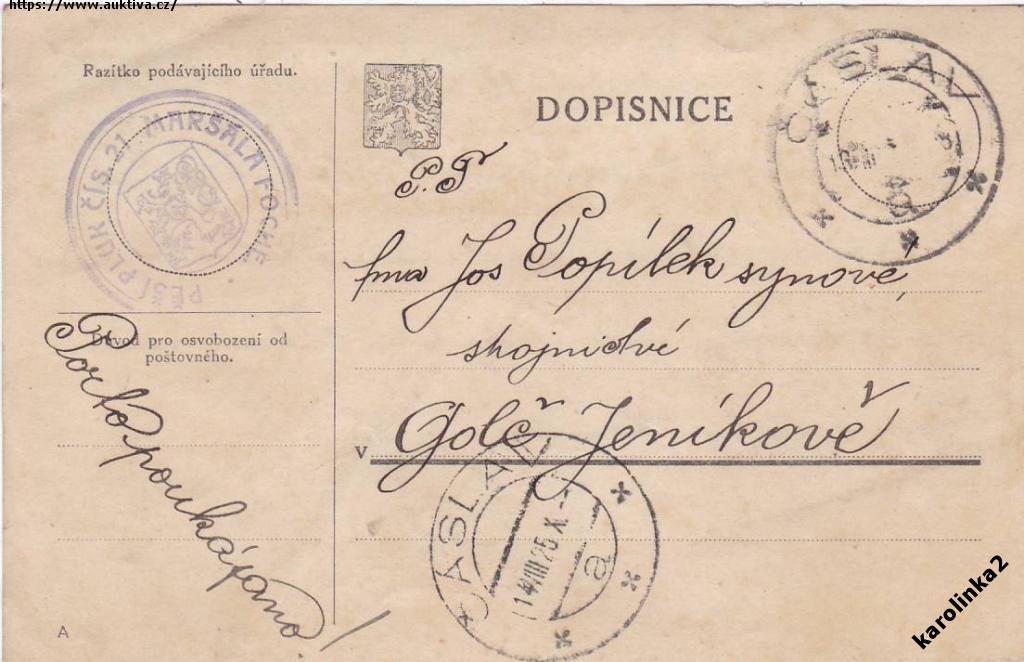 https://www.auktiva.cz/
Razítko podávajícího úřadu.
PĚŠÍ PLUK ČÍS. 21 MARŠÁLA FOCHE
DOPISNICE
ČÁSLAV
P.T
fma Jos Popílek synové,
strojnictví
v Golč Jeníkově
Důvod pro osvobození od
poštovného.
Porto poukázáno
ČÁSLAV
14 VIII 25 X.
a
A
karolinka2